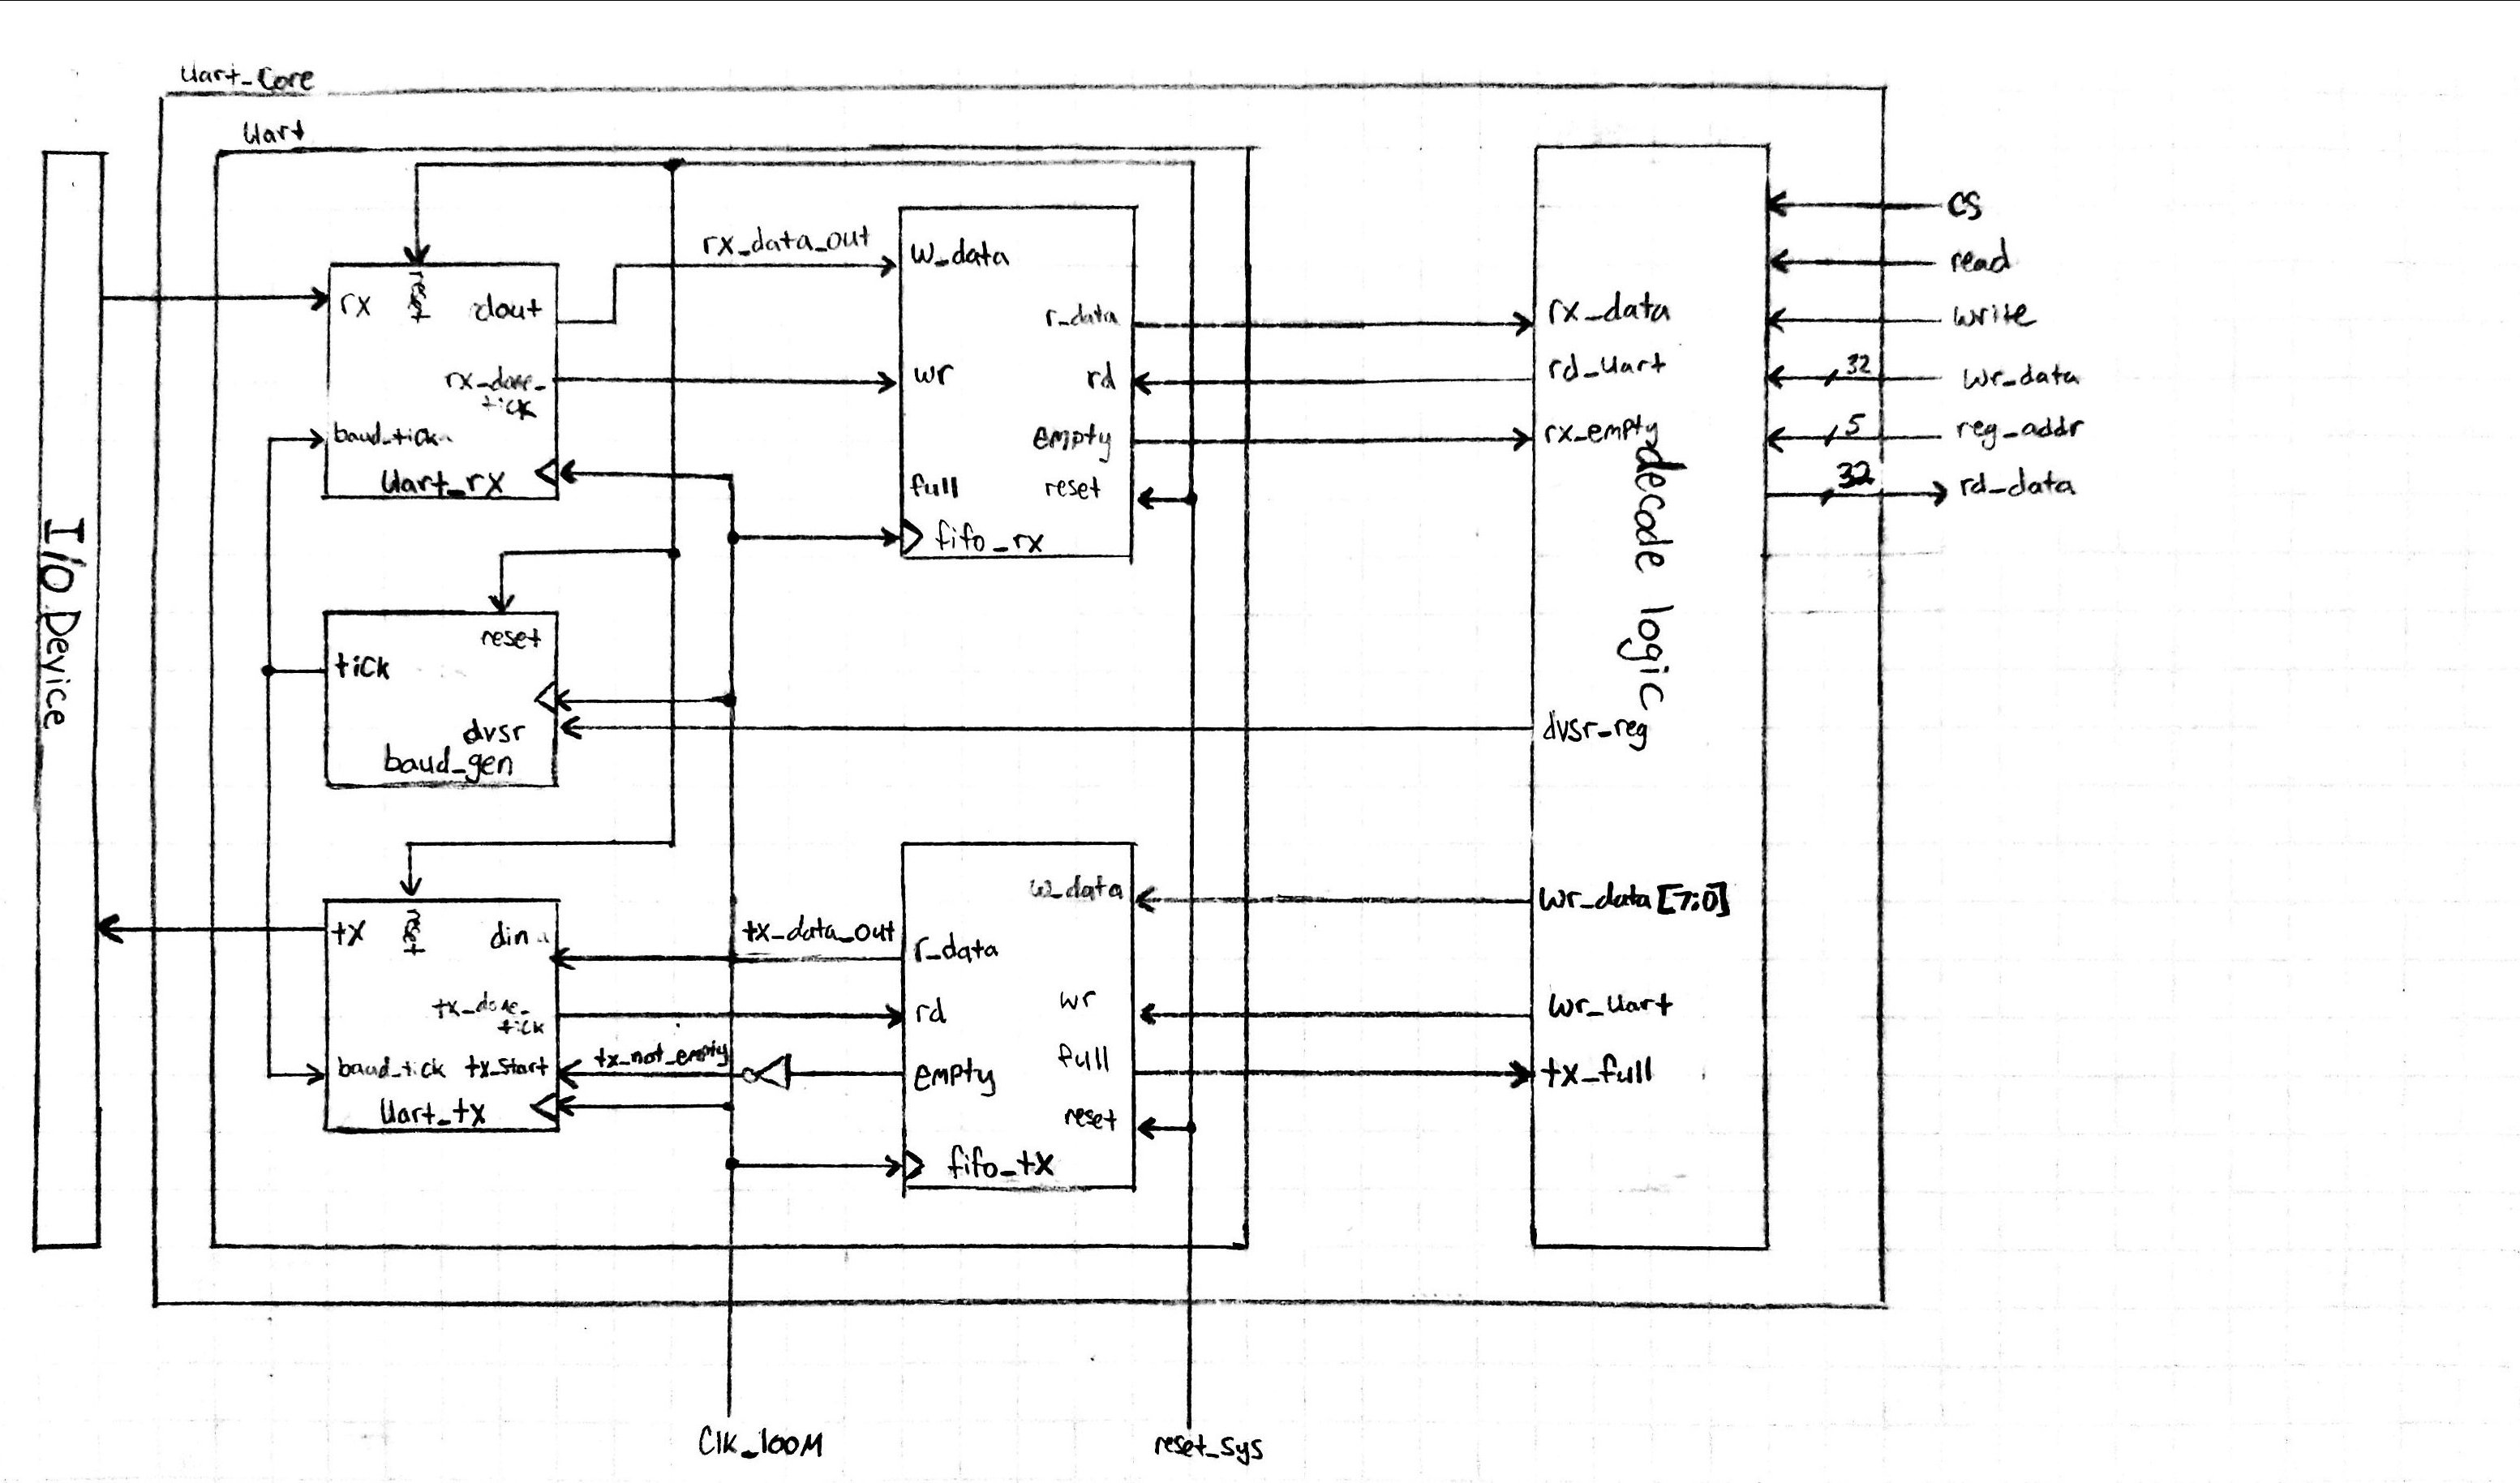 Uart_Core
Uart
I/O Device
rx
reset
dout
rx_done_
tick
baud_tick
Uart_rx
rx_data_out
w_data
r_data
wr
rd
empty
full
reset
fifo_rx
reset
tick
dvsr
baud_gen
tx
reset
din
tx_done_
tick
baud_tick
tx_start
Uart_tx
tx_data_out
tx_not_empty
w_data
r_data
rd
wr
full
empty
reset
fifo_tx
rx_data
rd_uart
rx_empty
decode logic
dvsr_reg
wr_data[7:0]
wr_uart
tx_full
cs
read
write
32
wr_data
5
reg_addr
32
rd_data
Clk_100M
reset_sys